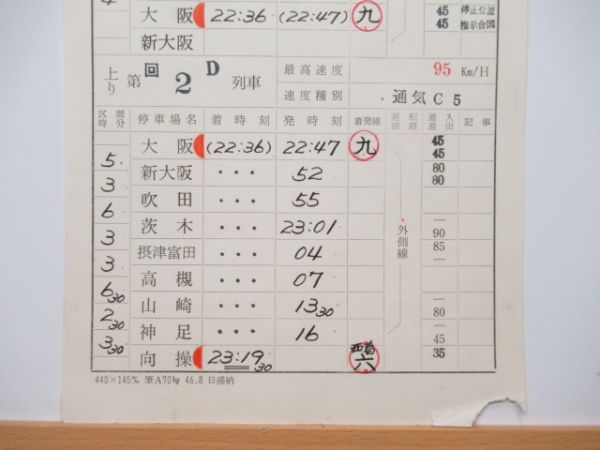 4
大阪 22:36 (22:47) 九 45 停止位置
新大阪 45 指示合図
上り 第 回 2 D 列車 最高速度 95 Km/H
速度種別 通気C5
区間 時分 停車場名 着時刻 発時刻 着発線 運転線路 進入 進出 記事
大阪 (22:36) 22:47 九 45 45
5
新大阪 ・・・ 52 80 80
3
吹田 ・・・ 55
6
茨木 ・・・ 23:01 — 90
3
外側線
摂津富田 ・・・ 04 85
3
高槻 ・・・ 07 —
6 30
山崎 ・・・ 13 30 — 80
2 30
神足 ・・・ 16 — 45
3 30
向操 23:19 30 六 35
440×145% 筆A70kg 46.8 日盛納